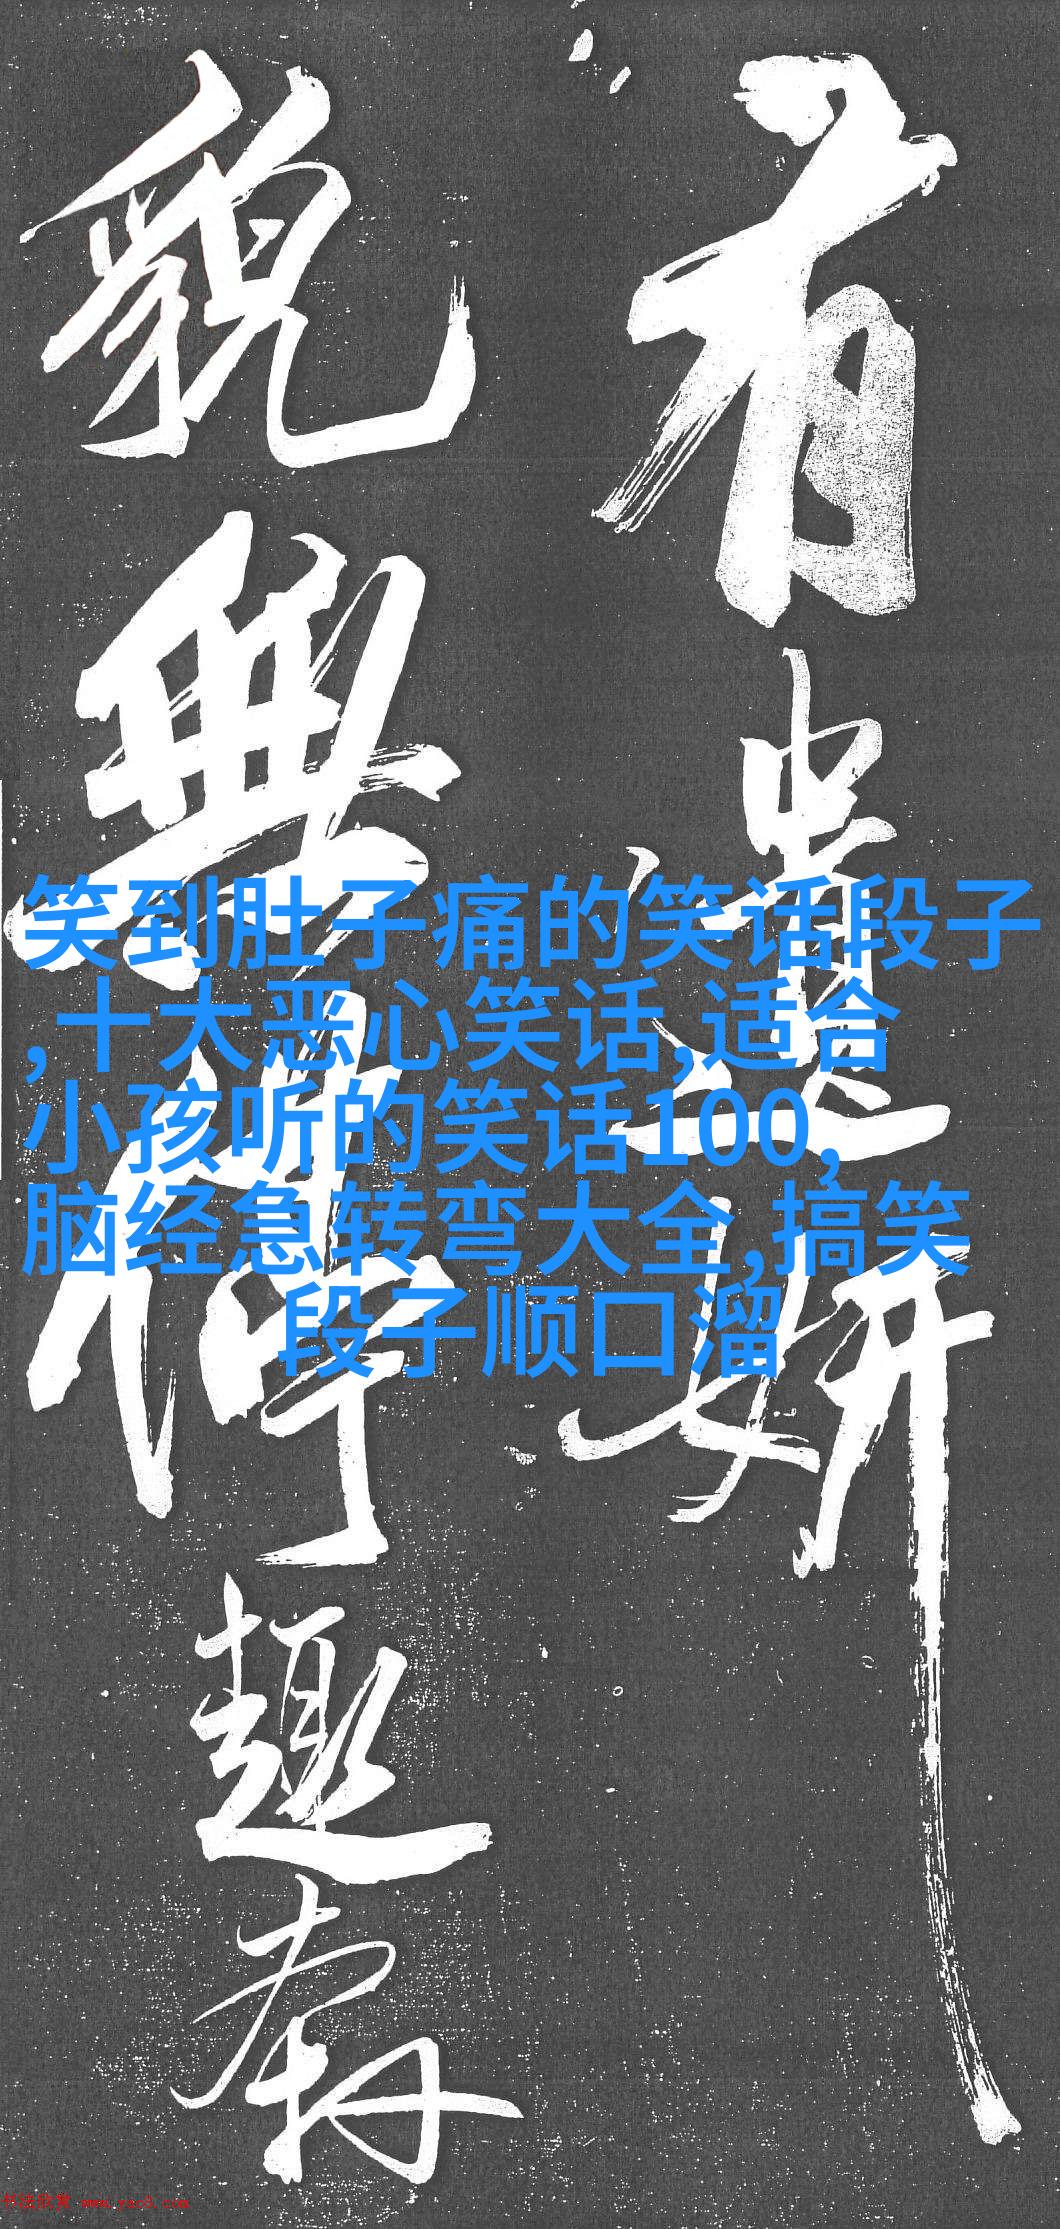 有遺妍
貌無停趣
笑到肚子痛的笑话段子
,十大恶心笑话,适合
小孩听的笑话100,
脑经急转弯大全,搞笑
段子顺口溜
书法欣赏 www.yac8.com